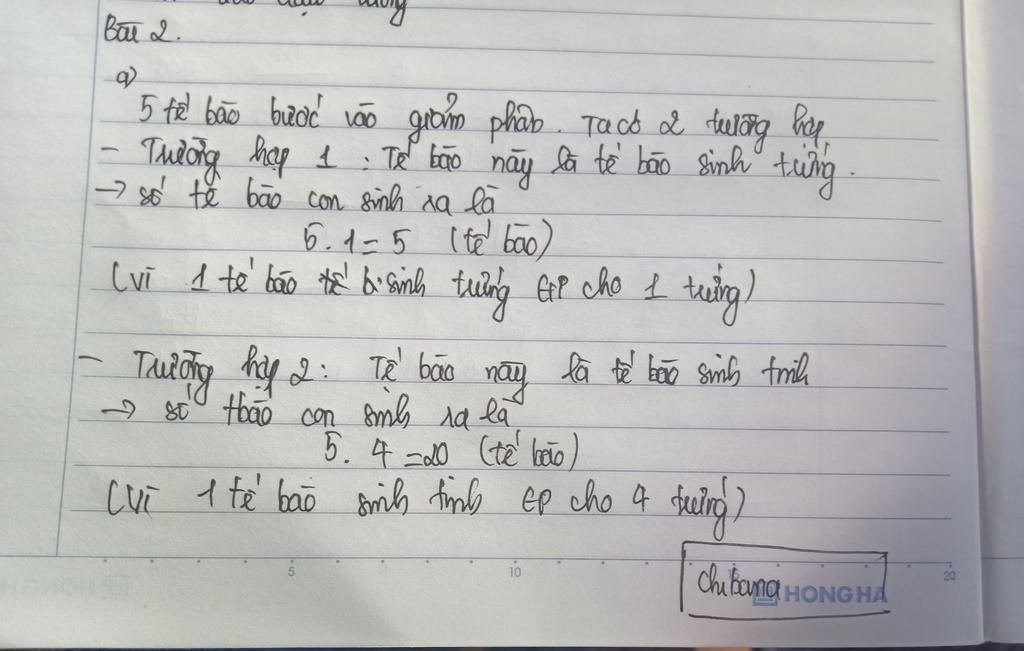 Bài 2.
a)
5 tế bào bước vào giảm phân. Ta có 2 trường hợp
- Trường hợp 1 : Tế bào này là tế bào sinh trứng.
→ số tế bào con sinh ra là
5. 1 = 5 (tế bào)
(Vì 1 tế bào tế b. sinh trứng GP cho 1 trứng)
- Trường hợp 2 : Tế bào này là tế bào sinh tinh
→ số tbào con sinh ra là
5. 4 = 20 (tế bào)
(Vì 1 tế bào sinh tinh GP cho 4 trứng)
5 10 20
chibana HONG HA